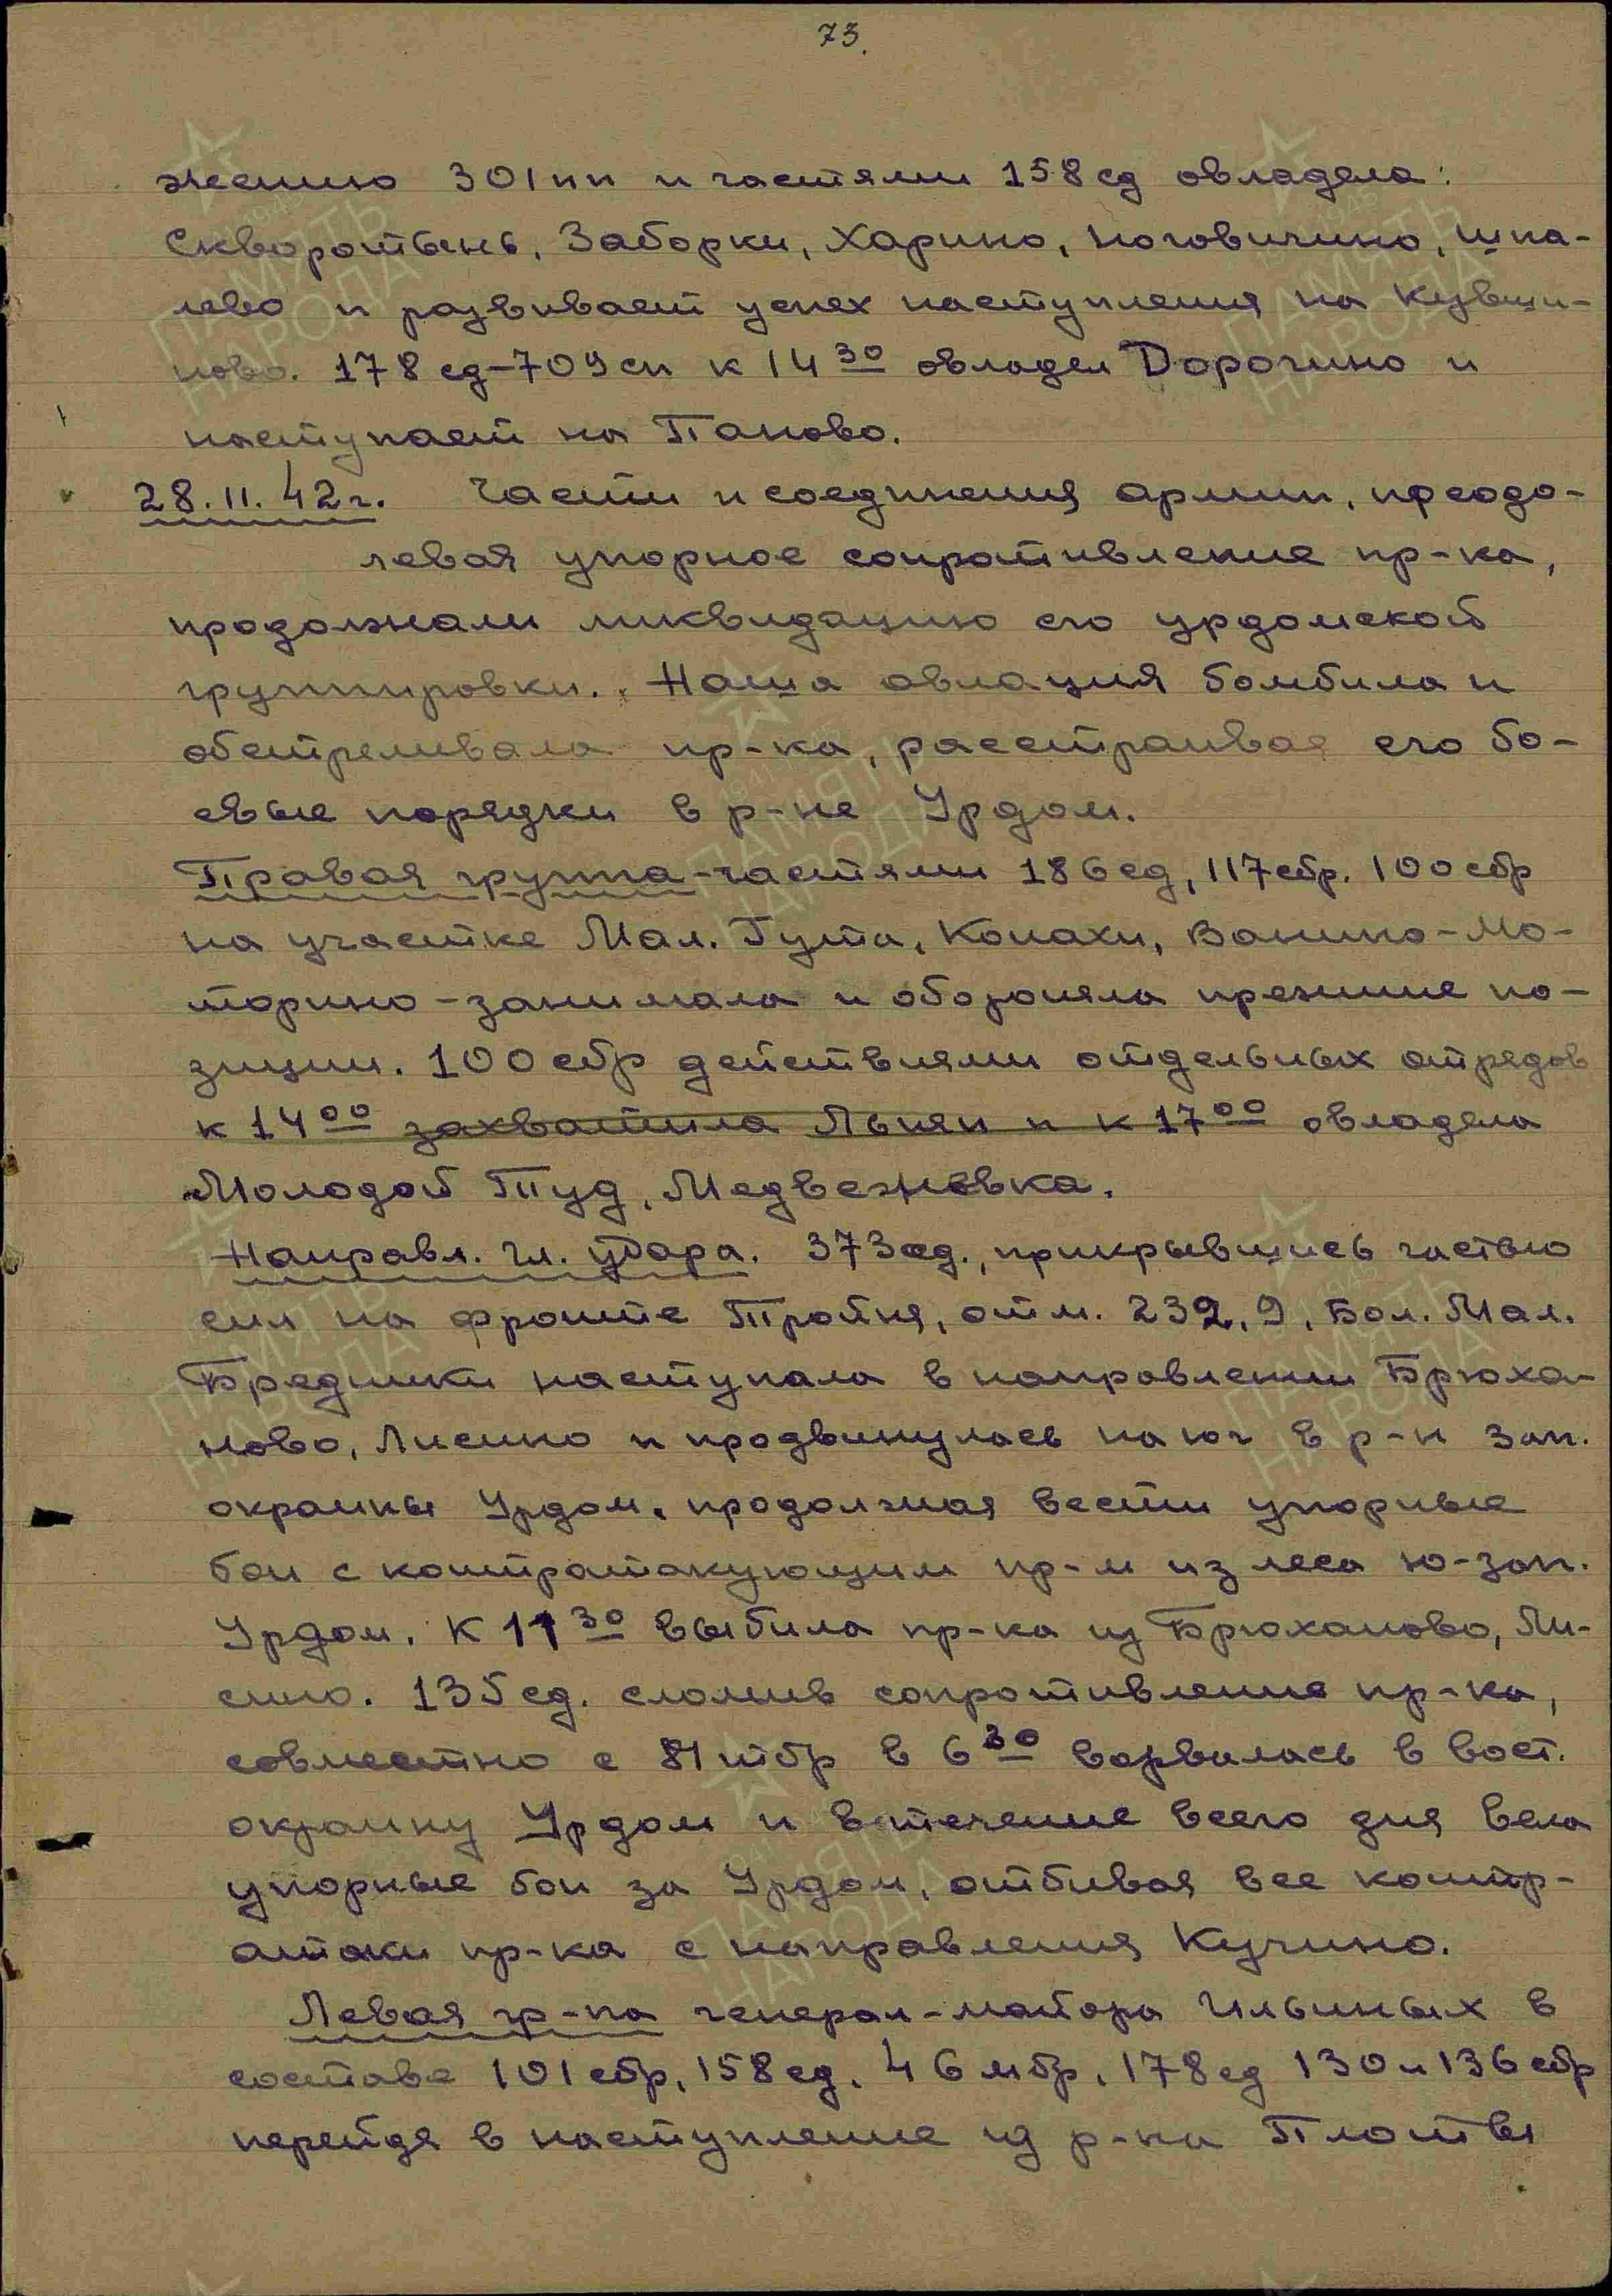 73.
жению 301 пп и частями 158 сд овладела:
Скворотынь, Заборки, Харино, Ноговицино, Шпа-
лево и развивает успех наступления на Кувши-
ново. 178 сд-709 сп к 14 30 овладел Дорогино и
наступает на Паново.
28.11.42 г. Части и соединения армии, преодо-
левая упорное сопротивление пр-ка,
продолжали ликвидацию его урдомской
группировки. Наша авиация бомбила и
обстреливала пр-ка, расстраивая его бо-
евые порядки в р-не Урдом.
Правая группа-частями 186 сд, 117 сбр. 100 сбр
на участке Мал. Гута, Копахи, Ванино-Мо-
торино-занимала и обороняла прежние по-
зиции. 100 сбр действиями отдельных отрядов
к 14 00 захватила Льняп и к 17 00 овладела
Молодой Туд, Медвежовка.
Направл. гл. удара. 373 сд., прикрывшись частью
сил на фронте Тройня, отм. 232,9, Бол. Мал.
Бредники наступала в направлении Брюха-
ново, Лисино и продвинулась на юг в р-н зап.
окраины Урдом, продолжая вести упорные
бои с контратакующим пр-м из леса ю-зап.
Урдом. К 11 30 выбила пр-ка из Брюханово, Ли-
сино. 135 сд. сломив сопротивление пр-ка,
совместно с 81 тбр в 6 30 ворвалась в вост.
окраину Урдом и втечение всего дня вела
упорные бои за Урдом, отбивая все контр-
атаки пр-ка с направления Кучино.
Левая гр-па генерал-майора Ильиных в
составе 101 сбр, 158 сд, 46 мбр, 178 сд 130 и 136 сбр
перейдя в наступление из р-на Плотвы
ПАМЯТЬ
НАРОДА
1941-1945